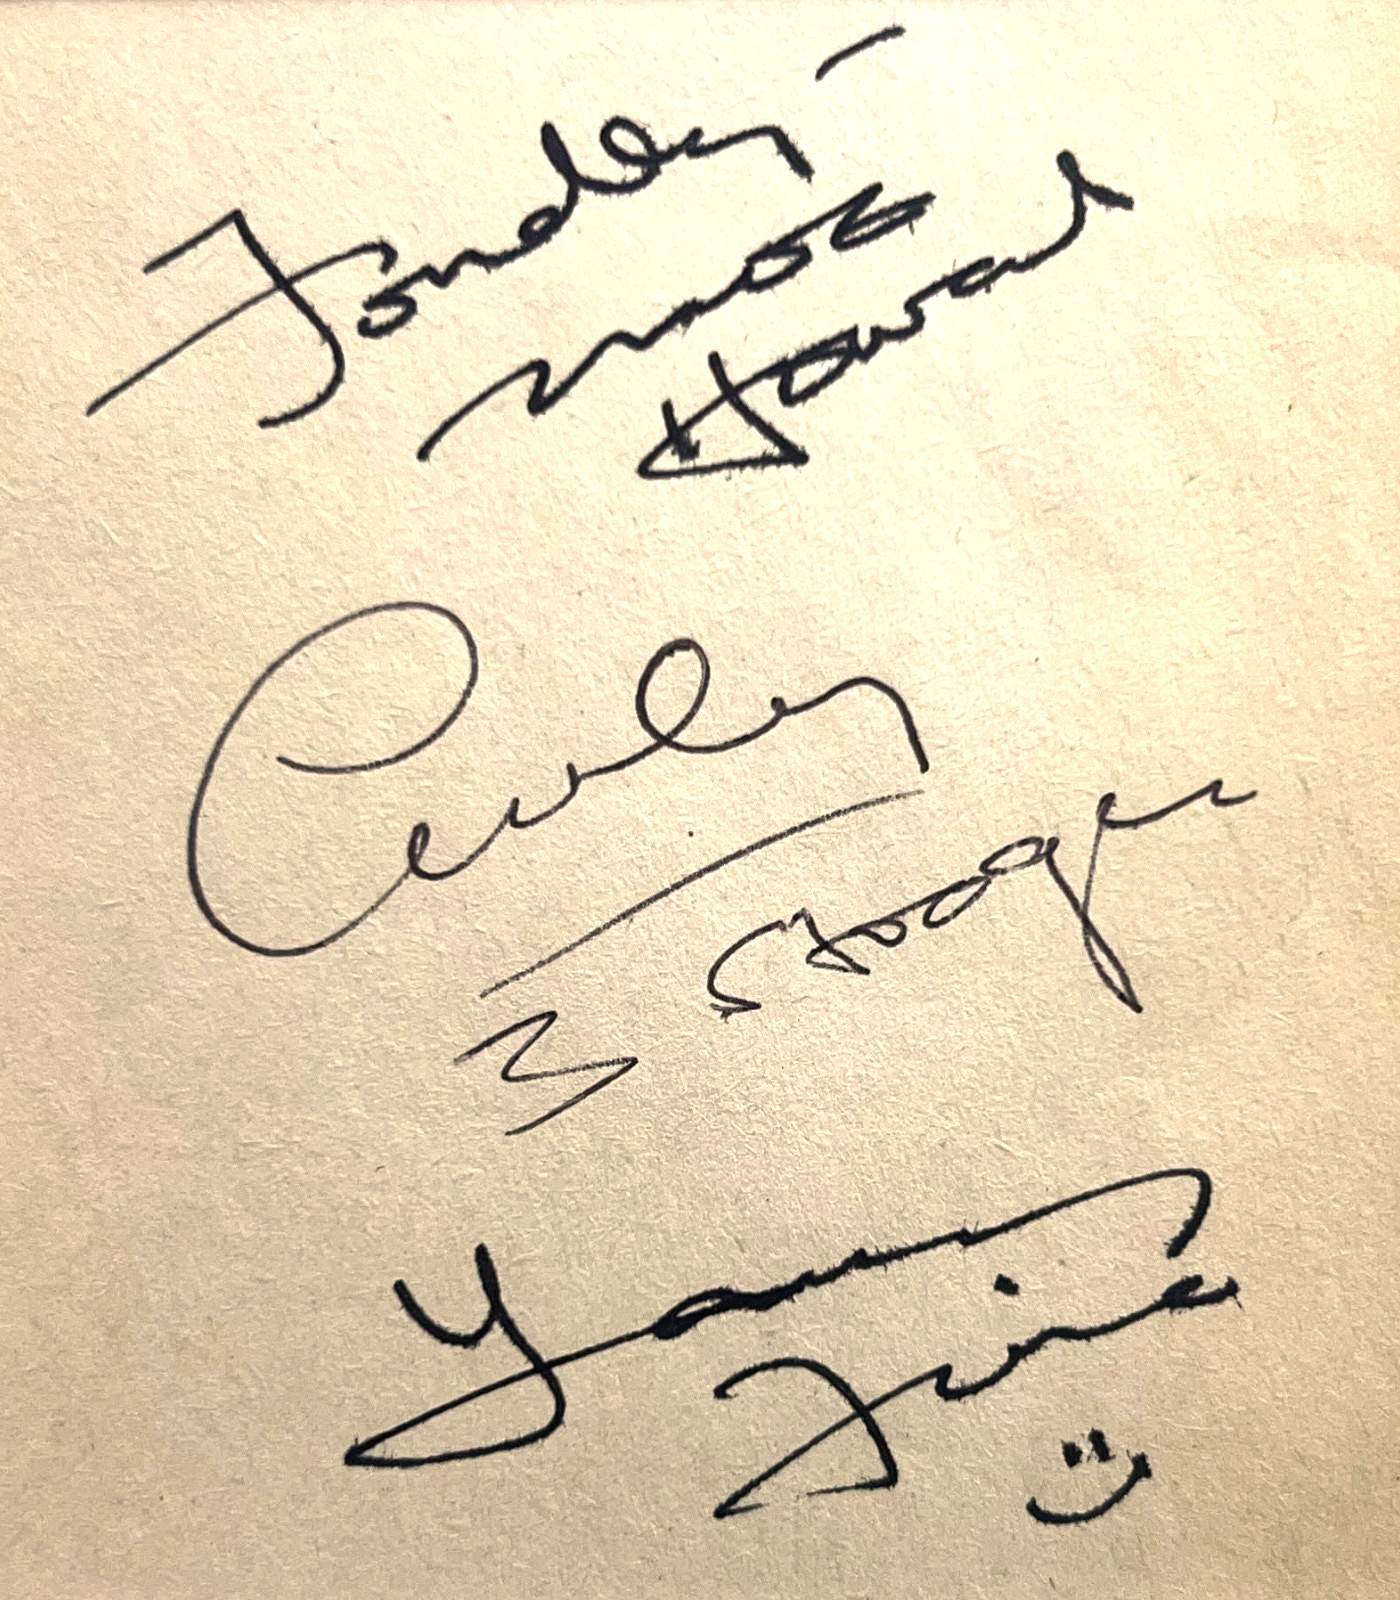 Fondly -
Moe
Howard
Curley
3 Stooges
Larry
Fine